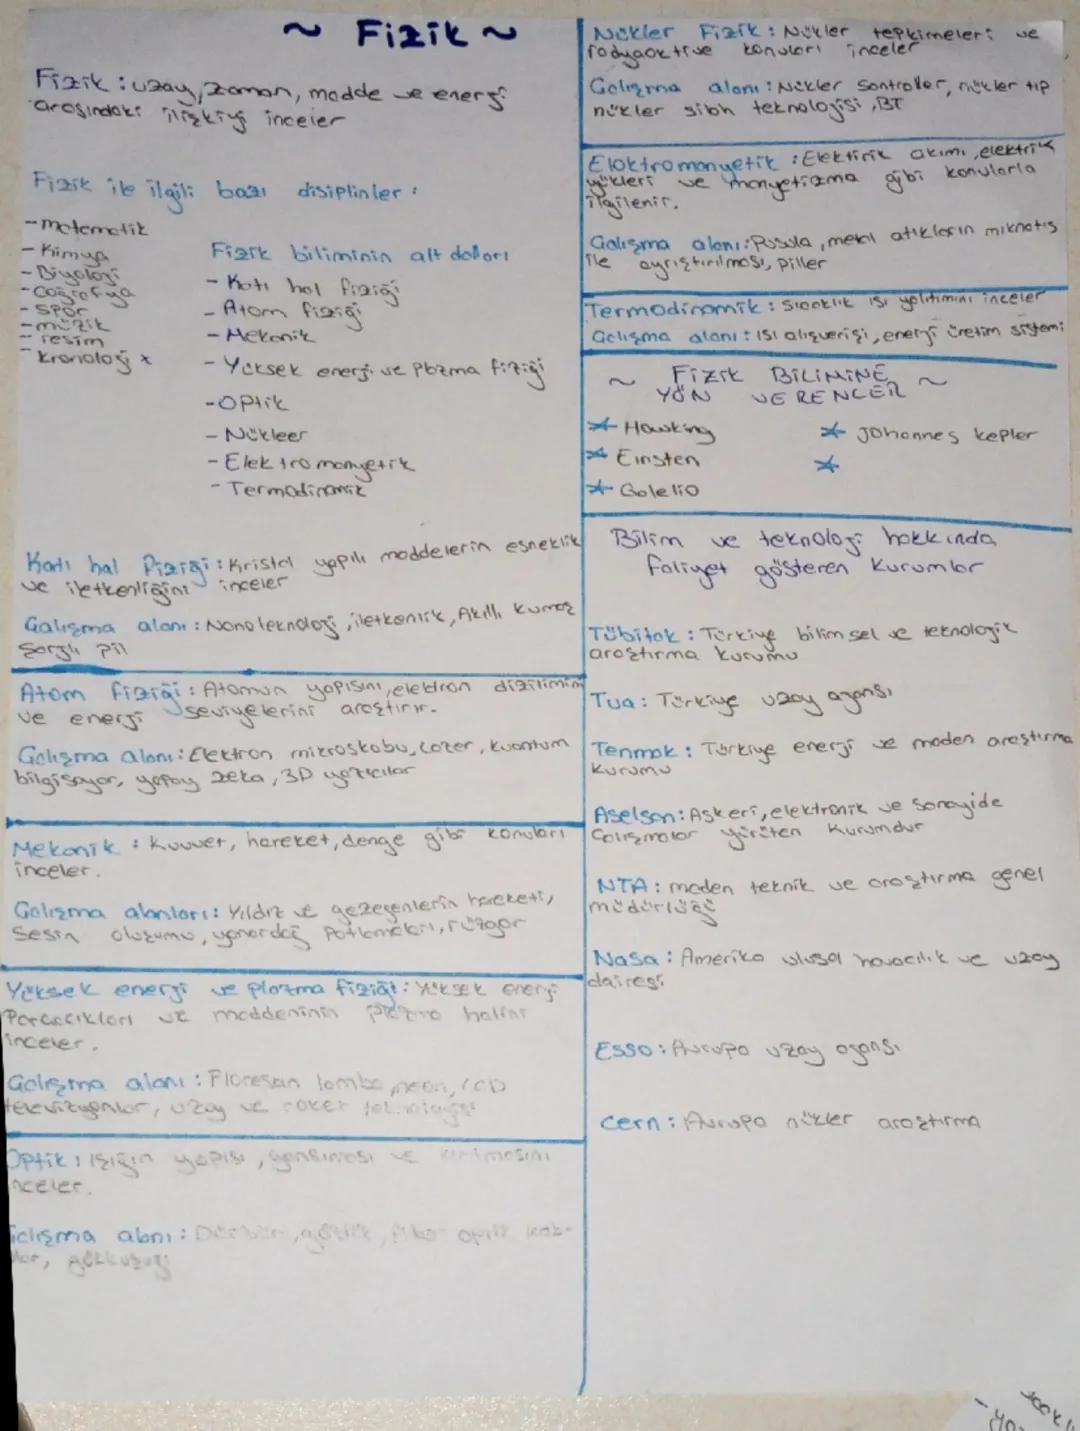 ~ Fizik ~
Fizik : uzay, zaman, madde ve enerji
arasındaki ilişkiyi inceler
Fizik ile ilgili bazı disiplinler :
- matematik
- Kimya
- Biyoloji
- Coğrafya
- Spor
- müzik
- resim
- kronoloji x
Fizik biliminin alt dalları
- Katı hal fiziği
- Atom fiziği
- Mekanik
- Yüksek enerji ve plazma fiziği
- Optik
- Nükleer
- Elektromanyetik
- Termodinamik
Katı hal Fiziği : Kristal yapılı maddelerin esneklik
ve iletkenliğini inceler
Çalışma alanı : Nanoteknoloji, iletkenlik, Akıllı kumaş
Şarjlı pil
Atom fiziği : Atomun yapısını, elektron dizilimini
ve enerji seviyelerini araştırır.
Çalışma alanı : Elektron mikroskobu, Lazer, kuantum
bilgisayar, yapay zeka, 3D yazıcılar
Mekanik : Kuvvet, hareket, denge gibi konuları
inceler.
Çalışma alanları : Yıldız ve gezegenlerin hareketi,
Sesin oluşumu, yanardağ patlamaları, rüzgar
Yüksek enerji ve plazma fiziği : Yüksek enerji
Parçacıkları ve maddenin plazma halini
inceler.
Çalışma alanı : Floresan lamba, neon, LCD
televizyonlar, uzay ve roket teknolojisi
Optik : ışığın yapısı, yansıması ve kırılmasını
inceler.
Çalışma alanı : Dürbün, gözlük, fiber optik kab-
lar, gökkuşağı
Nükler Fizik : Nükler tepkimeleri ve
radyoaktive konuları inceler
Çalışma alanı : Nükler santraller, nükler tıp
nükler silah teknolojisi, BT
Elektromanyetik : Elektirik akımı, elektrik
yükleri ve manyetizma gibi konularla
ilgilenir.
Çalışma alanı : Pusula, metal atıkların mıknatıs
ile ayrıştırılması, piller
Termodinamik : Sıcaklık ısı yalıtımını inceler
Çalışma alanı : ısı alışverişi, enerji üretim sistemi
~ FİZİK BİLİMİNE ~
YÖN VERENLER
* Hawking
* Einsten
* Galelio
* Johannes kepler
*
Bilim ve teknoloji hakkında
faliyet gösteren kurumlar
Tübitak : Türkiye bilimsel ve teknolojik
araştırma kurumu
Tua : Türkiye uzay ajansı
Tenmak : Türkiye enerji ve maden araştırma
kurumu
Aselsan : Askeri, elektronik ve sanayide
Çalışmalar yürüten kurumdur
NTA : maden teknik ve araştırma genel
müdürlüğü
Nasa : Amerika ulusal havacılık ve uzay
dairesi
Essa : Avrupa uzay ajansı
Cern : Avrupa nükler araştırma